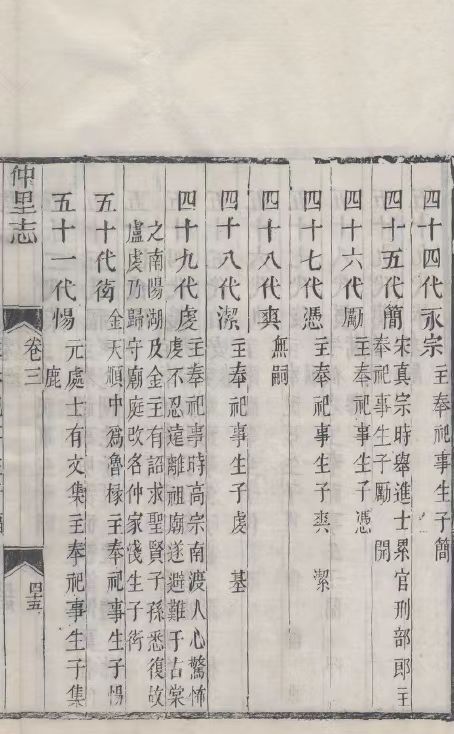 四十四代永宗主奉祀事生子簡
四十五代簡宋真宗時舉進士累官刑部郎主
奉祀事生子勵 開
四十六代勵主奉祀事生子憑
四十七代憑主奉祀事生子奭 潔
四十八代奭無嗣
四十八代潔主奉祀事生子虔 基
四十九代虔主奉祀事時高宗南渡人心驚怖
虔不忍遠離祖廟遂避難于古棠
之南陽湖及金主有詔求聖賢子孫悉復故
廬虔乃歸守廟庭改名仲家淺生子衖
五十代衖金天順中為魯椽主奉祀事生子惕
五十一代惕元處士有文集主奉祀事生子集
鹿
仲里志
卷三
四十五